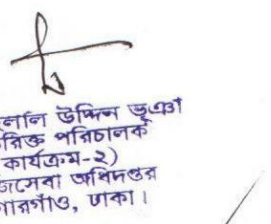 লাল উদ্দিন ভূঞা
রিক্ত পরিচালক
কার্যক্রম-২)
জসেবা অধিদপ্তর
গারগাঁও, ঢাকা।